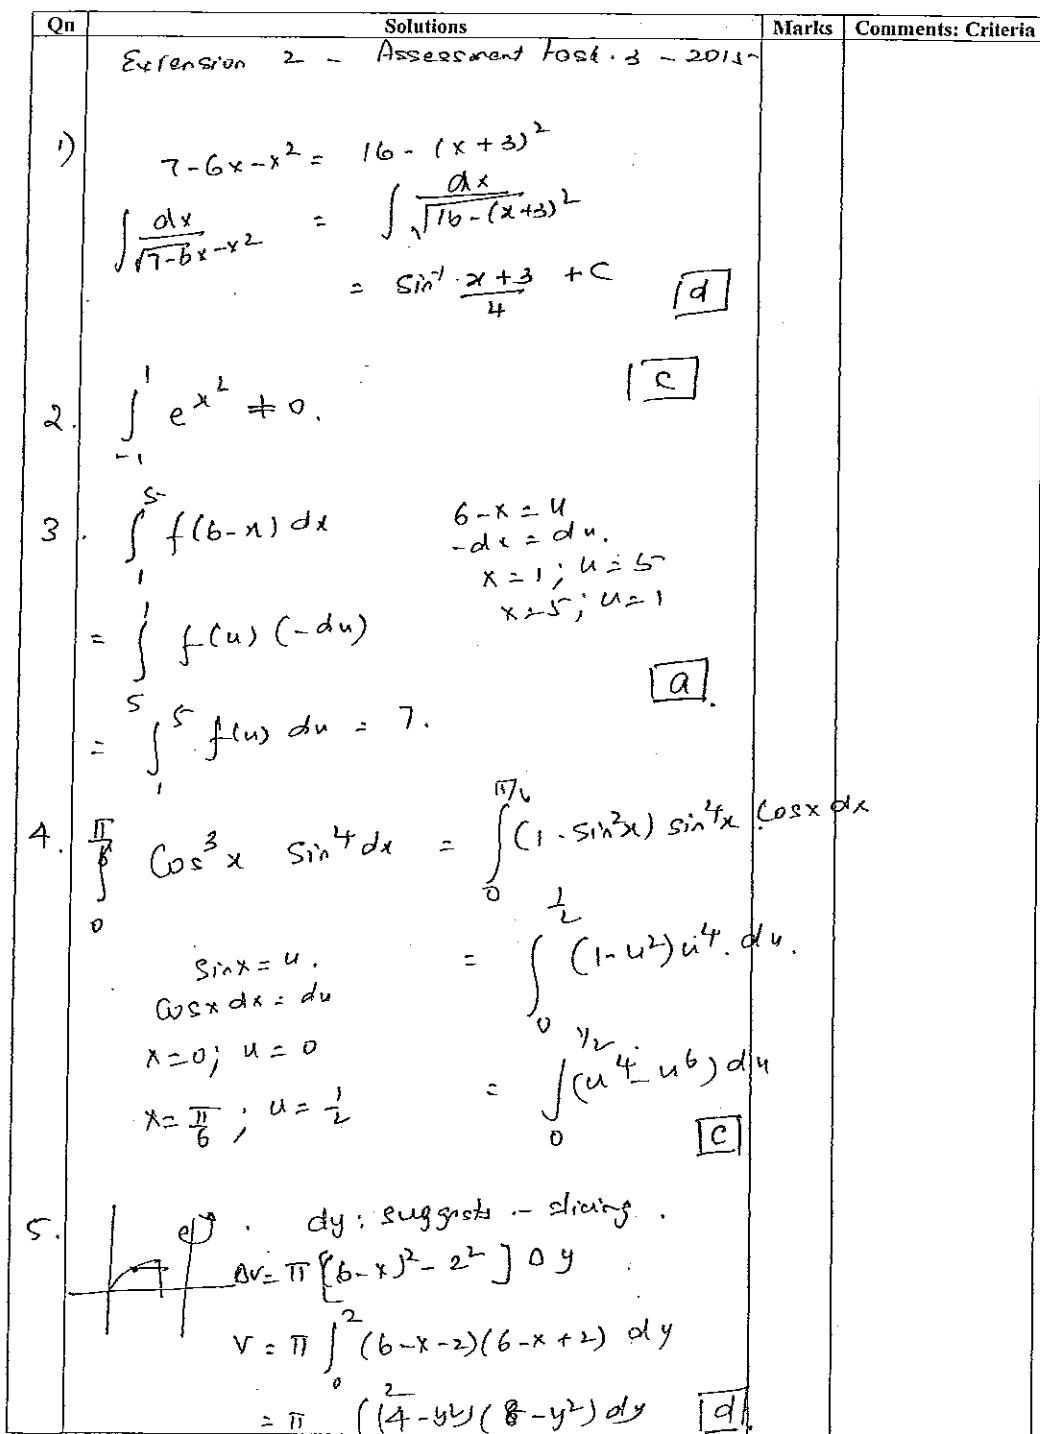 Qn Solutions Marks Comments: Criteria
Extension 2 - Assessment task. 3 - 2015
1) 7-6x-x² = 16-(x+3)²
∫ dx/√(7-6x-x²) = ∫ dx/√(16-(x+3)²)
= Sin⁻¹ (x+3)/4 + C [d]
2. ∫₋₁¹ e^(x²) ≠ 0. [c]
3. ∫₁⁵ f(6-x) dx 6-x = u
-dx = du.
x=1; u=5
x=5; u=1
= ∫₅¹ f(u) (-du)
[a].
= ∫₁⁵ f(u) du = 7.
4. ∫₀^(π/6) Cos³x Sin⁴ dx = ∫₀^(π/6) (1-sin²x) sin⁴x Cosx dx
sinx = u. = ∫₀^(1/2) (1-u²)u⁴. du.
Cosx dx = du
x=0; u=0 = ∫₀^(1/2) (u⁴-u⁶) du
x=π/6; u=1/2 [c]
5. dy: suggests - slicing.
ΔV = π[(6-x)²-2²] Δy
V = π ∫₀² (6-x-2)(6-x+2) dy
= π ∫² (4-y²)(8-y²) dy [d].